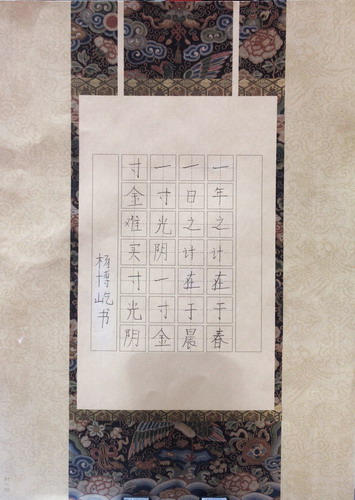 一年之计在于春
一日之计在于晨
一寸光阴一寸金
寸金难买寸光阴
杨博屹书